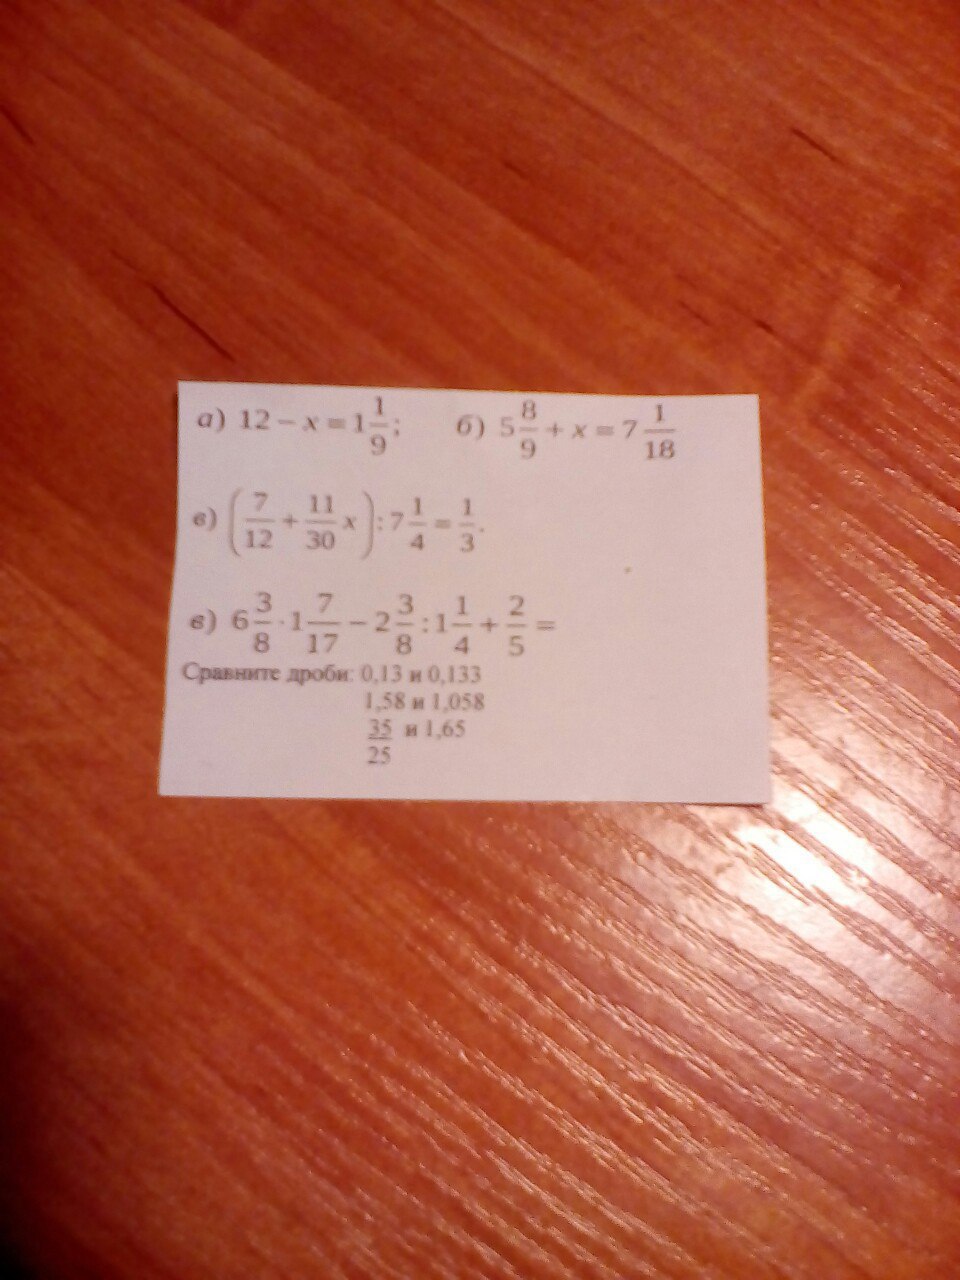 а) 12 − x = 1 1/9; б) 5 8/9 + x = 7 1/18
в) (7/12 + 11/30 x) : 7 1/4 = 1/3.
в) 6 3/8 · 1 7/17 − 2 3/8 : 1 1/4 + 2/5 =
Сравните дроби: 0,13 и 0,133
1,58 и 1,058
35/25 и 1,65